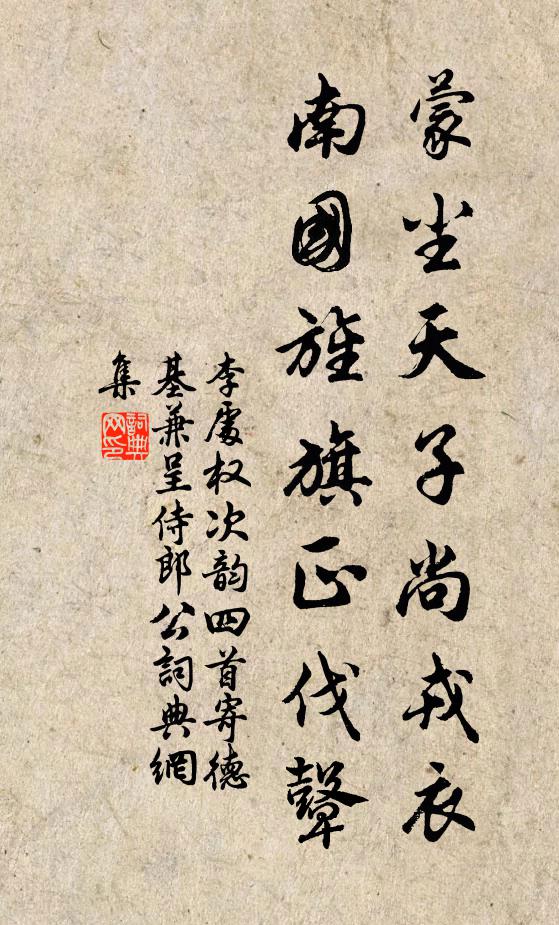 蒙尘天子尚戎衣
南國旌旗正伐鼙
李處权次韵四首寄德
基兼呈侍郎公詞典網
集
詞典
网印